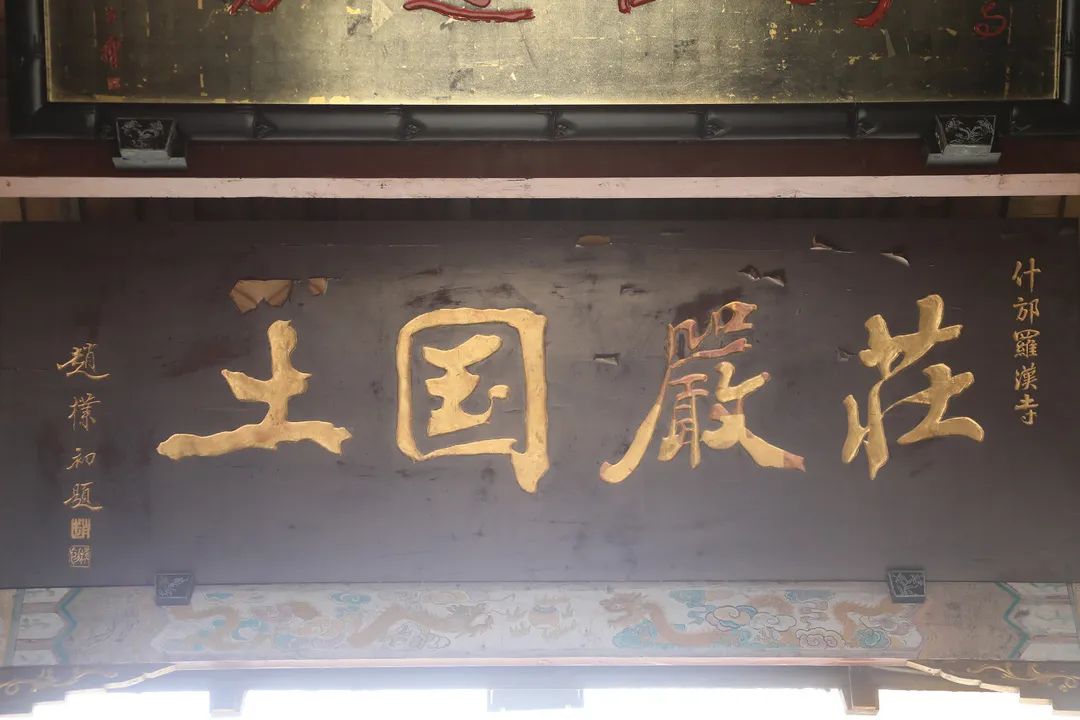 什邡羅漢寺
莊嚴国土
趙樸初題